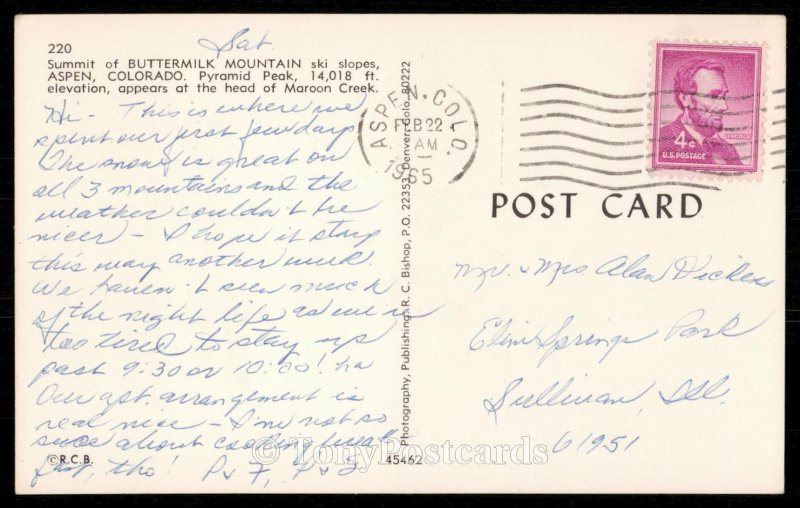 Sat.
220
Summit of BUTTERMILK MOUNTAIN ski slopes,
ASPEN, COLORADO. Pyramid Peak, 14,018 ft.
elevation, appears at the head of Maroon Creek.
Hi - This is where we
spent our first few days
The snow is great on
all 3 mountains and the
weather couldn't be
nicer - I hope it stays
this way another week.
We haven't seen much
of the night life as we're
too tired to stay up
past 9:30 or 10:00! ha
Our apt. arrangement is
real nice - I'm not so
about cooking break
fast, tho!
©R.C.B.
Photography, Publishing, R. C. Bishop, P.O. 22353, Denver, Colo. 80222
45462
ASPEN, COLO.
FEB 22
AM
1965
4¢
LINCOLN
U.S. POSTAGE
POST CARD
Mr. & Mrs Alan Dickens
Elim Springs Park
Sullivan, Ill.
61951
© TonyPostcards